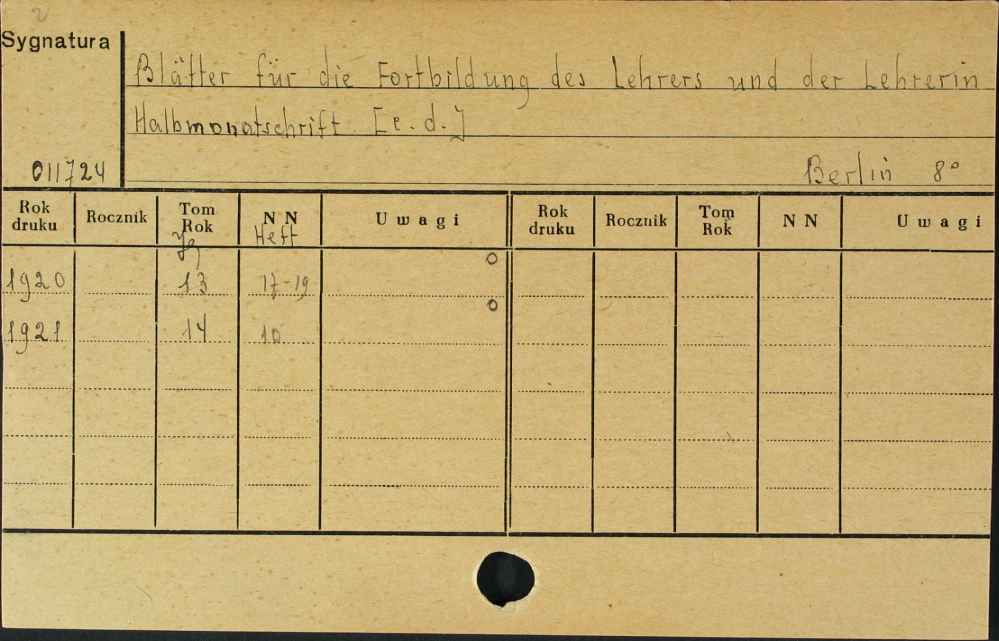 Sygnatura
Blätter für die Fortbildung des Lehrers und der Lehrerin
Halbmonatschrift [e. d.]
011724
Berlin 8°
Rok druku Rocznik Tom Rok NN Uwagi Rok druku Rocznik Tom Rok NN Uwagi
Jg Heft
1920 13 17-19
1921 14 10